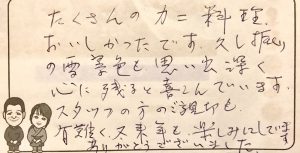 たくさんのカニ料理
おいしかったです。久し振り
の雪景色も思い出深く
心に残ると喜んでいます。
スタッフの方のご親切も
有難く、又来年も楽しみにしてます
ありがとうございました。